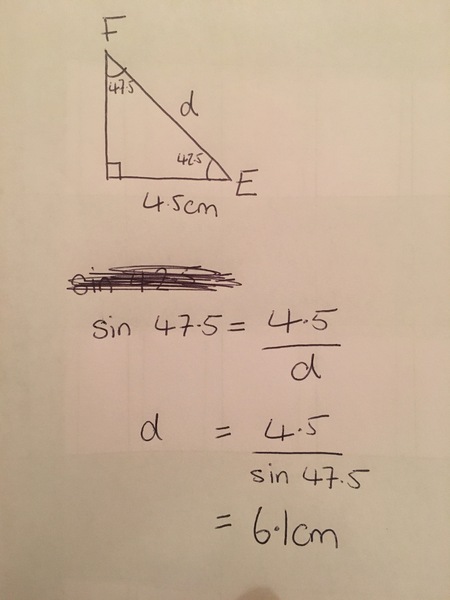 F
47.5
d
42.5
E
4.5cm
sin 42.5
sin 47.5 = 4.5
d
d = 4.5
sin 47.5
= 6.1cm